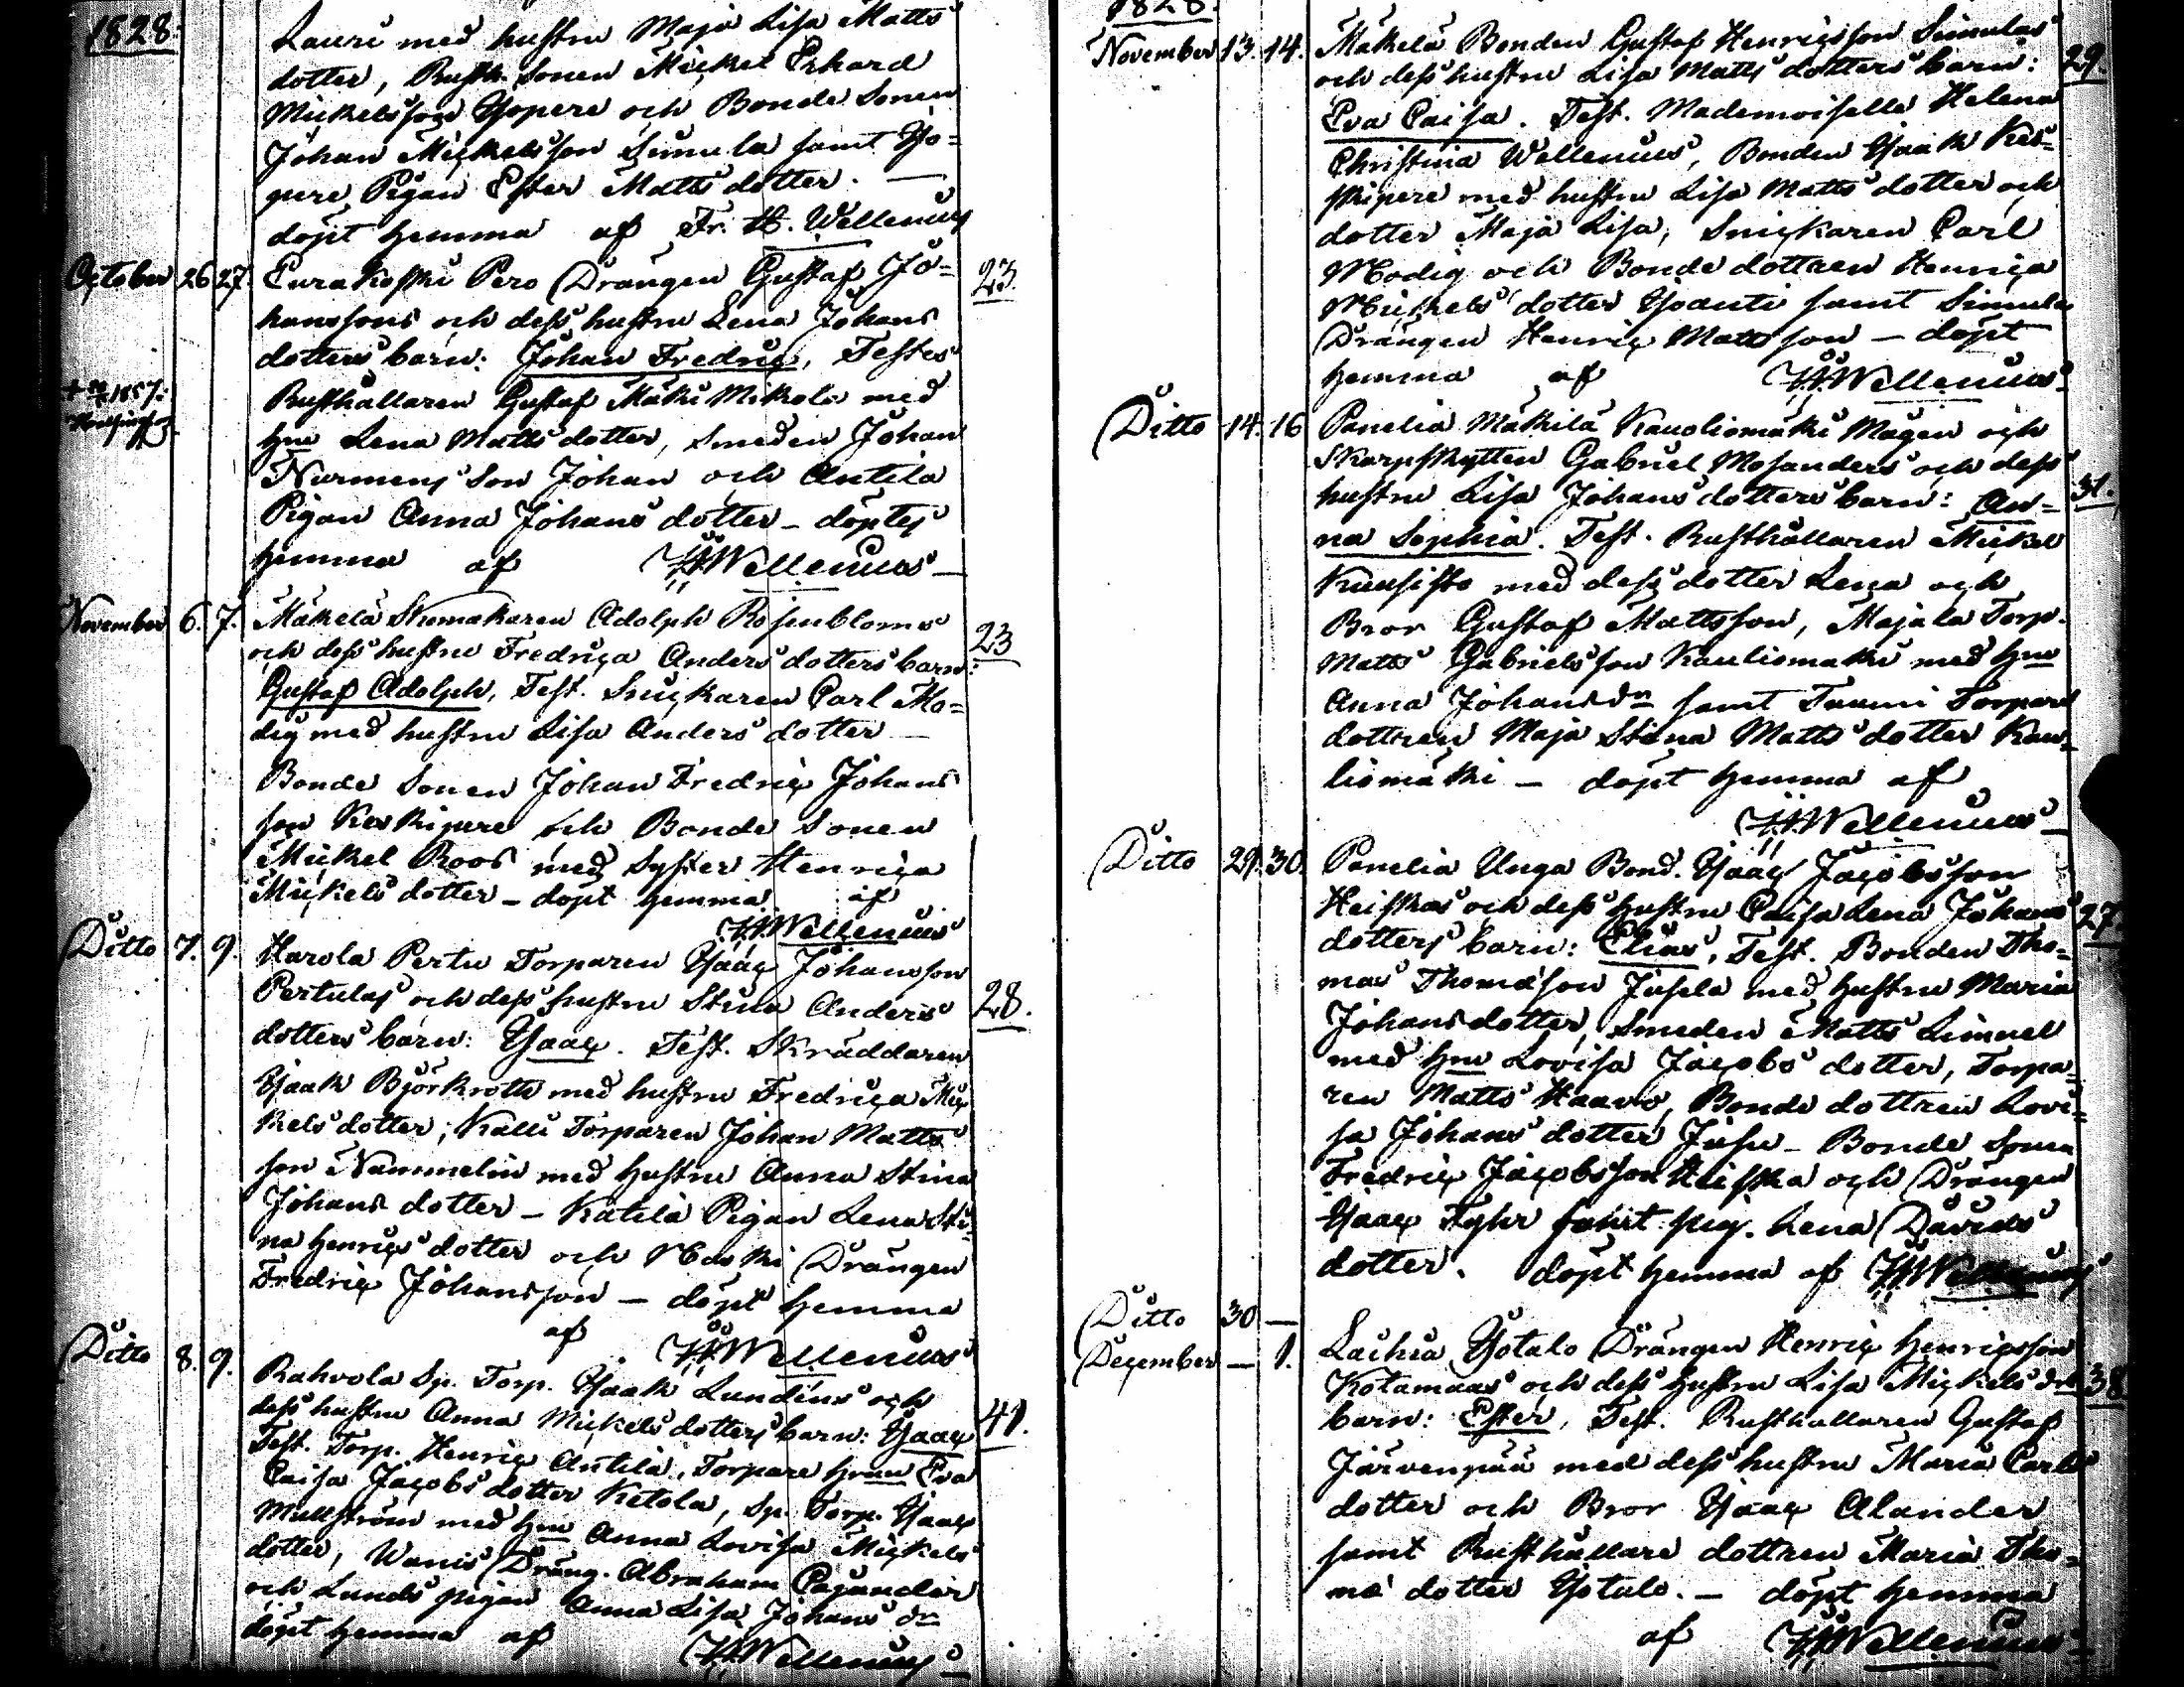 1828.
Lauri med hustru Maja Lisa Matts
dotter, Rusth. Sonen Mickel Erhard
Mickelsson Yopere och Bonde Sonen
Johan Mickelsson Simula samt Yo=
pere Pigan Ester Matts dotter. —
döpt hemma af Fr. H. Wellenius
October 26 27. Eurakoski Pero Drängen Gustaf Jo= 23.
hanssons och dess hustru Lena Johans
dotters barn: Johan Fredric, Testes
+ 1857.
Rusthållaren Gustaf Mäki Mikola med
hru Lena Matts dotter, Smeden Johan
Nurmens Son Johan och Antila
Pigan Anna Johans dotter – döptes
hemma af HWellenius —
November 6. 7. Mäkelä Skomakaren Adolph Rosenbloms 23
och dess hustru Fredrica Anders dotters barn:
Gustaf Adolph, Test. Snickaren Carl Mo=
dig med hustru Lisa Anders dotter —
Bonde Sonen Johan Fredric Johans
son Keskipere och Bonde Sonen
Mickel Roos med Syster Henrica
Mickels dotter – döpt hemma af
HWellenius
Ditto 7. 9. Harola Pertu Torparen Ysaac Johansson
Pertulas och dess hustru Stina Anders 28.
dotters barn: Ysaac. Test. Skräddaren
Ysaak Björkroth med hustru Fredrica Mic
kels dotter, Kalli Torparen Johan Matts
son Nummelin med hustru Anna Stina
Johans dotter – Katila Pigan Lena Sti=
na Henrics dotter och Drängen
Fredric Johansson — döpt hemma
af HWellenius
Ditto 8. 9. Rahvola Sp. Torp. Ysaak Lundéns och
dess hustru Anna Mickels dotters barn: Ysaac 41.
Test. Torp. Henric Antila, Torpare hrun Eva
Caisa Jacobs dotter Ketola, Sp. Torp. Ysaac
Mullström med hru Anna Lovisa Mickels
dotter, Wanis Dräng. Abraham Cajander
och Lunds pigan Anna Lisa Johans dr
döpt hemma af HWellenius —
1828.
November 13. 14. Mäkelä Bonden Gustaf Henricsson Simulas
och dess hustru Lisa Matts dotters barn: 29.
Eva Caisa. Test. Mademoiselle Helena
Christina Wellenius, Bonden Ysaak Kes=
kipere med hustru Lisa Matts dotter och
dotter Maja Lisa, Snickaren Carl
Modig och Bonde dottren Henrica
Mickels dotter Ypanti samt Simula
Drängen Henric Mattsson — döpt
hemma af HWellenius
Ditto 14. 16 Panelia Mäkilä Kauoliomäki Mågen och
Skarpskytten Gabriel Mosanders och dess
hustru Lisa Johans dotters barn: An= 31.
na Sophia. Test. Rusthållaren Mickel
Kuusisto med dess dotter Lena och
Bror Gustaf Mattsson, Majala Torp.
Matts Gabrielsson Kauliomäki med hru
Anna Johansdr samt Tuumi Torpare
dottren Maja Stina Matts dotter Kau=
liomäki – döpt hemma af
HWellenius —
Ditto 29. 30. Panelia Unga Bond. Ysaac Jacobsson
Heiskas och dess hustru Caisa Lena Johans 27.
dotters barn: Elias, Test. Bonden Tho=
mas Thomasson Jusela med hustru Maria
Johans dotter, Smeden Matts Limnel
med hru Lovisa Jacobs dotter, Torpa=
ren Matts Haavo, Bonde dottren Lovi=
sa Johans dotter Juse – Bonde Sonen
Fredric Jacobsson Heiska och Drängen
Ysaac Fyhr samt pig. Lena Davids
dotter. döpt hemma af HWellenius
Ditto 30 —
December — 1. Laihia Yotalo Drängen Henric Henricsson
Kotamaas och dess hustru Lisa Mickels drs 38
barn: Ester, Test. Rusthållaren Gustaf
Järvenpää med dess hustru Maria Carls
dotter och Bror Ysaac Alander
samt Rusthållare dottren Maria Tho=
ma dotter Yotalo. – döpt hemma
af HWellenius